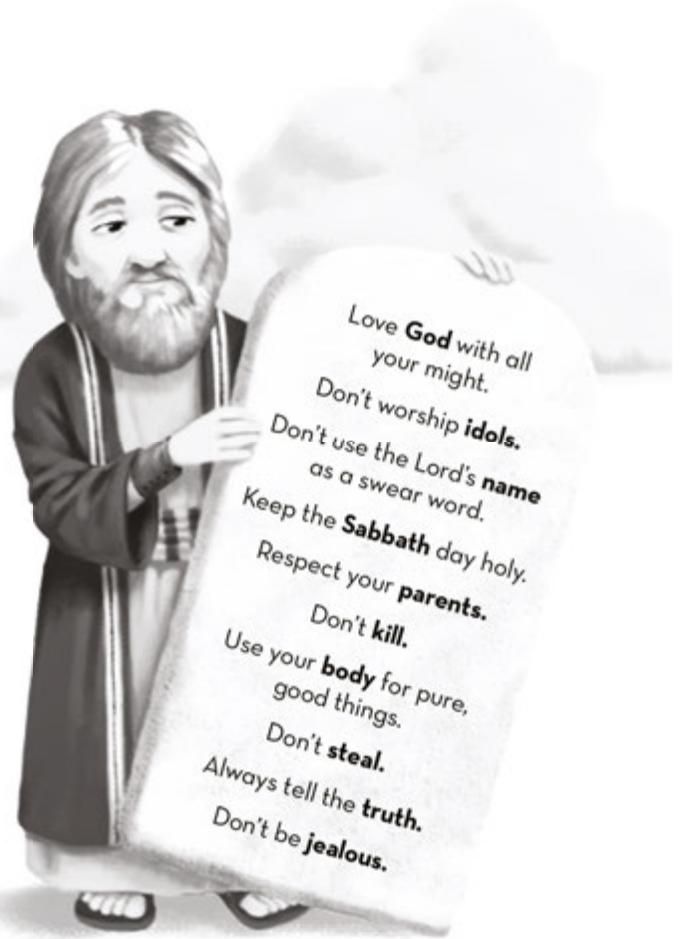 Love God with all
your might.
Don't worship idols.
Don't use the Lord's name
as a swear word.
Keep the Sabbath day holy.
Respect your parents.
Don't kill.
Use your body for pure,
good things.
Don't steal.
Always tell the truth.
Don't be jealous.